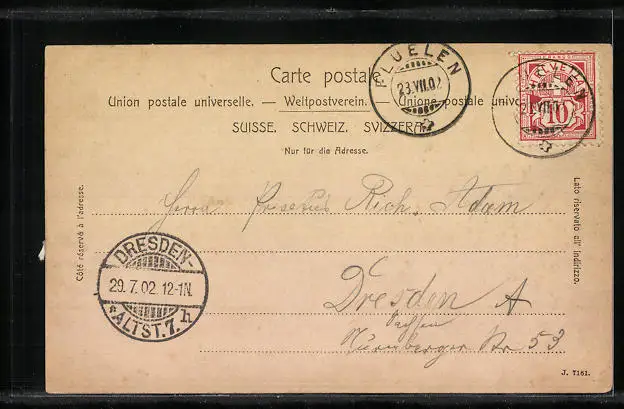 Carte postale.
Union postale universelle. — Weltpostverein. — Unione postale unive
SUISSE. SCHWEIZ. SVIZZERA.
Nur für die Adresse.
FLUELEN
23.VII.02
HELVETIA
10
Côté réservé à l'adresse.
Lato riservato all' indirizzo.
Herrn Rich. Adam
DRESDEN-
29.7.02 12-1N.
*ALTST.7.h
Dresden A
Sachsen
Nürnberger Str 53
J. 7161.